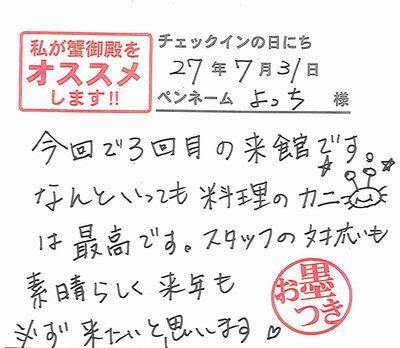 私が蟹御殿を
オススメ
します!!
チェックインの日にち
27年7月31日
ペンネーム よっち 様
今回で3回目の来館です。
なんといっても料理のカニ
は最高です。スタッフの対応も
素晴らしく来年も
必ず来たいと思いします
お墨つき